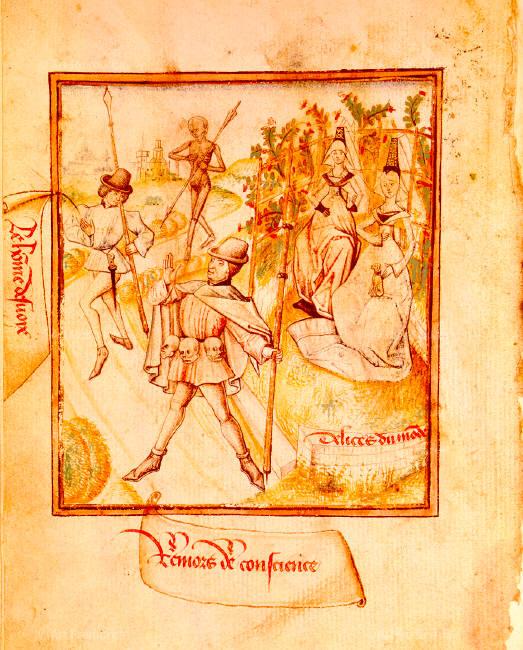 Le hōme desuoye
Delices du mōde
Remors de conscience